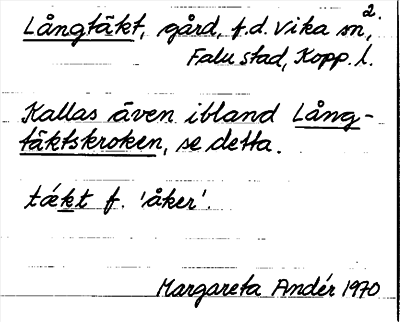 Långtäkt, gård, f.d. Vika sn²,
Falu stad, Kopp. l.
Kallas även ibland Lång-
täktskroken, se detta.
tǽkt f. 'åker'.
Margareta Andér 1970